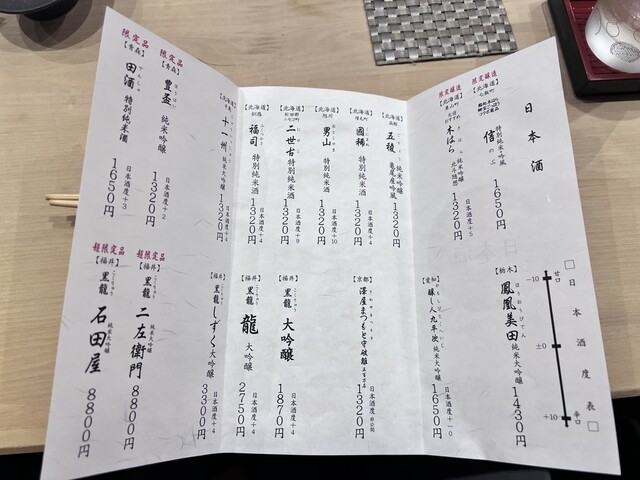 日本酒
限定醸造
【北海道】
信
のぶ
特別純米吟風
1650円
限定醸造
【北海道】
木はら
純米吟醸
北斗随想
日本酒度+5
1320円
【北海道】
五稜
純米吟醸
1320円
【北海道】
國稀
特別純米酒
日本酒度+4
1320円
【北海道】
旭川
男山
特別純米酒
日本酒度+10
1320円
【北海道】
二世古
特別純米酒
日本酒度+9
1320円
【北海道】
釧路
福司
特別純米酒
日本酒度+4
1320円
【北海道】
十一州
純米大吟醸
日本酒度+4
1320円
限定品
【青森】
豊盃
ほうはい
純米吟醸
日本酒度+2
1320円
限定品
【青森】
田酒
でんしゅ
特別純米酒
日本酒度+3
1650円
□日本酒度表□
甘口
-10
±0
+10
辛口
【栃木】
鳳凰美田
ほうおうびでん
純米大吟醸
1430円
【愛知】
醸し人九平次
純米大吟醸
1650円
【京都】
澤屋まつもと守破離
日本酒度 非公開
1320円
【福井】
黒龍
こくりゅう
大吟醸
日本酒度+4
1870円
【福井】
黒龍
こくりゅう
龍
大吟醸
日本酒度+4
2750円
【福井】
黒龍
こくりゅう
しずく
大吟醸
日本酒度+4
3300円
超限定品
【福井】
黒龍
こくりゅう
二左衛門
純米大吟醸
8800円
超限定品
【福井】
黒龍
こくりゅう
石田屋
純米大吟醸
8800円